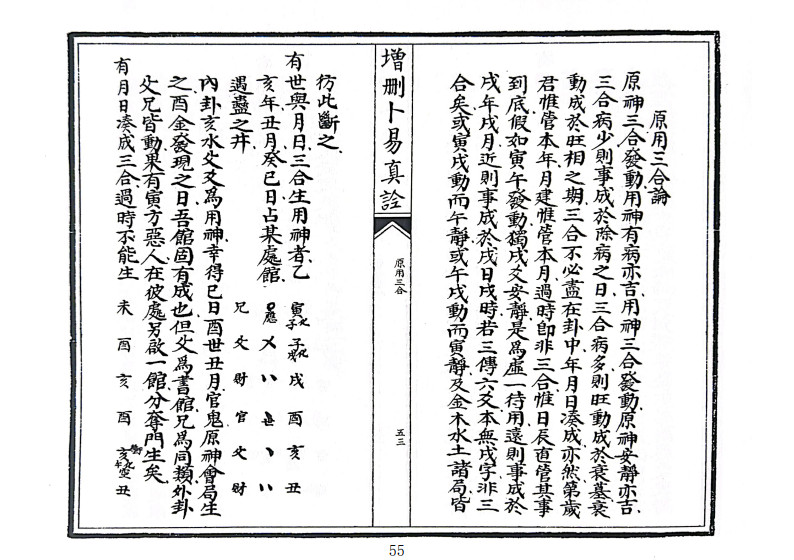 原用三合論
原神三合發動用神有病亦吉用神三合發動原神安靜亦吉
三合病少則事成於除病之日三合病多則旺動成於衰墓衰
動成於旺相之期三合不必盡在卦中年月日湊成亦然第歲
君惟管本年月建惟管本月過時即非三合惟日辰直管其事
到底假如寅午發動獨戌爻安靜是為虛一待用遠則事成於
戌年戌月近則事成於戌日戌時若三傳六爻本無戌字非三
合矣或寅戌動而午靜或午戌動而寅靜及金木水土諸局皆
增刪卜易真詮
原用三合
五三
彷此斷之
有世與月日三合生用神者乙
亥年丑月癸巳日占某處館
遇蠱之井
寅 子 戌 酉 亥 丑
兄 父 財 官 父 財
內卦亥水父爻為用神幸得巳日酉世丑月官鬼原神會局生
之酉金發現之日吾館固有成也但父為書館兄為同類外卦
父兄皆動果有寅方惡人在彼處另啟一館分奪門生矣
有月日湊成三合過時不能生
未 酉 亥 酉 亥 丑
55